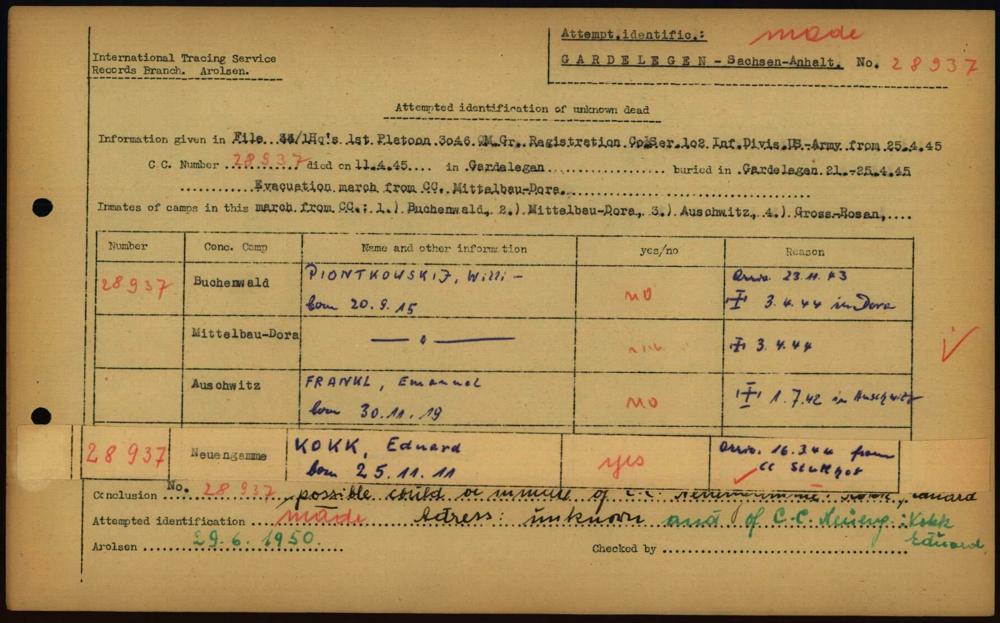 Attempt.identific.: made
International Tracing Service
Records Branch. Arolsen.
GARDELEGEN - Sachsen-Anhalt. No. 28937
Attempted identification of unknown dead
Information given in File 33/1Hq's 1st Platoon 3046 QM.Gr. Registration Co.Ser.102 Inf.Divis.US-Army from 25.4.45
C.C. Number 28937 died on 11.4.45 in Gardelegen buried in Gardelegen 21.-25.4.45
Evacuation march from CC. Mittelbau-Dora.
Inmates of camps in this march from CC.: 1.) Buchenwald, 2.) Mittelbau-Dora, 3.) Auschwitz, 4.) Gross-Rosen,
Number Conc. Camp Name and other information yes/no Reason
28937 Buchenwald PIONTKOWSKIJ, Willi - no Arriv. 23.11.43
born 20.9.15 3.4.44 in Dora
Mittelbau-Dora 3.4.44
Auschwitz FRANKL, Emanuel no 1.7.42 in Auschwitz
born 30.11.19
28937 Neuengamme KOKK, Eduard yes Arriv. 16.3.44 from
born 25.11.11 CC
Conclusion No. 28937 possible could be inmate of C.C.
Attempted identification made Adress: unknown and of C.C. Neueng.: Kokk
Eduard
Arolsen 29.6.1950. Checked by